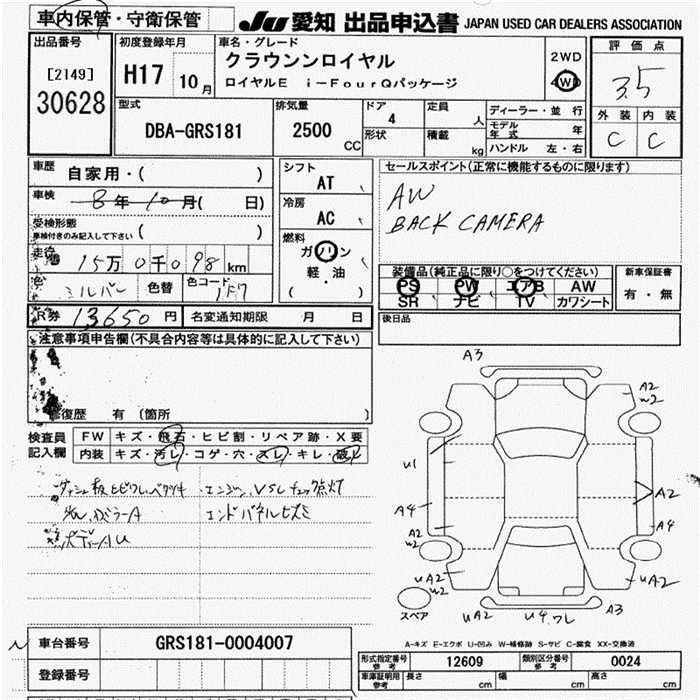 車内保管・守衛保管
JU 愛知 出品申込書 JAPAN USED CAR DEALERS ASSOCIATION
出品番号
[2149]
30628
初度登録年月
H17 10月
車名・グレード
クラウンンロイヤル
ロイヤルE i-FourQパッケージ
2WD
4WD
評価点
3.5
外装 内装
C C
型式
DBA-GRS181
排気量
2500 CC
ドア 4
形状
定員 人
積載 kg
ディーラー・並行
モデル年式 年
ハンドル 左・右
車歴 自家用・( )
車検 8年10月( 日)
受検形態
車検付きのみ記入して下さい ( )
走行 15万0千098km
色 シルバー 色替 色コード 1F7
シフト AT
冷房 AC
燃料 ガソリン
軽・油
( )
セールスポイント(正常に機能するものに限ります)
AW
BACK CAMERA
装備品(純正品に限り○をつけてください)
PS PW エアB AW
SR ナビ TV カワシート
新車保証書
有・無
R券 13650円 名変通知期限 月 日
後日品
注意事項申告欄(不具合内容等は具体的に記入して下さい)
修復歴 有 (箇所 )
検査員記入欄
FW キズ・飛石・ヒビ割・リペア跡・X要
内装 キズ・汚レ・コゲ・穴・スレ・キレ・破レ
エンジン、VSCチェック点灯
エンドパネルヒズミ
ボディーAU
A3
A2
W2
U1
A2
A4
A4
W2
UA2
W2
UA2
スペア
UA2
U4.ワレ
A3
A-キズ E-エクボ U-凹み W-補修跡 S-サビ C-腐食 XX-交換済
車台番号 GRS181-0004007
登録番号
形式指定番号 参考 12609 類別区分番号 参考 0024
車庫証明用 参考 長さ cm 幅 cm 高さ cm